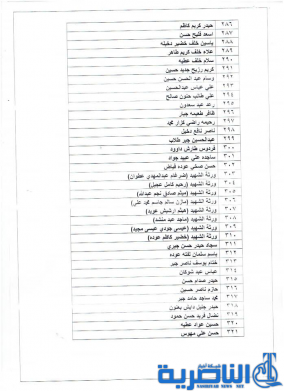 ٢٨٦ حيدر كريم كاظم
٢٨٧ اسعد فليح حسن
٢٨٨ ياسين خلف خضير دخيله
٢٨٩ علاء خلف كريم طاهر
٢٩٠ سلام خلف عطيه
٢٩١ كريم رزيج جديد حسين
٢٩٢ وسام عبد الحسن حسين
٢٩٣ علي عباس عبدالحسين
٢٩٤ علي طالب حنون صالح
٢٩٥ رائد عبد سعدون
٢٩٦ ظافر طعيمه جبار
٢٩٧ رحيمه راضي كزار
٢٩٨ ناصر نافع دخيل
٢٩٩ عبدالحسين جبر طلاب
٣٠٠ فردوس طارش داوود
٣٠١ ساجده علي عبيد جواد
٣٠٢ حسن صدفي عوده فياض
٣٠٣ ورثة الشهيد
٣٠٤ ورثة الشهيد (رحيم كامل عجيل)
٣٠٥ ورثة الشهيد (ميثم صادق نجم عبدالله)
٣٠٦ ورثة الشهيد (مازن سالم جاسم علي)
٣٠٧ ورثة الشهيد
٣٠٨ ورثة الشهيد (ماجد عبد منشد)
٣٠٩ ورثة الشهيد (عيسى جودي عيسى مجيد)
٣١٠ ورثة الشهيد (خضير كاظم عوده)
٣١١ سجاد حيدر حسن جبري
٣١٢ باسم سلمان عوده
٣١٣ ختام يوسف ناصر جبر
٣١٤ عباس عبد شوكان
٣١٥ حيدر صدام حسن
٣١٦ حازم ناصر حسين
٣١٧ ساجد حامد جبر
٣١٨ حيدر جليل دايش
٣١٩ نضال فريد حسن حمود
٣٢٠ حسين عواد عطيه
٣٢١ حسن علي مهوس
شبكة أخبار
الناصرية